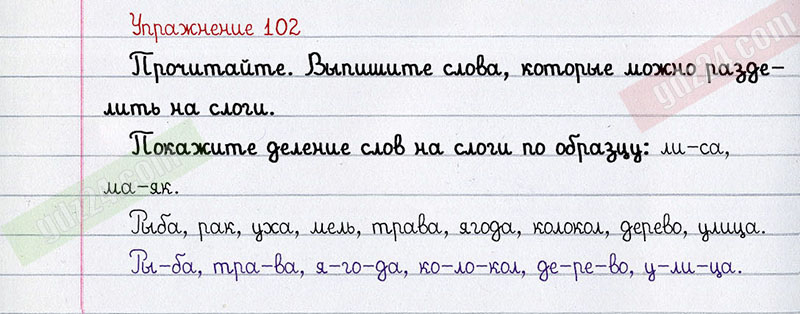 Упражнение 102
Прочитайте. Выпишите слова, которые можно разде-
лить на слоги.
Покажите деление слов на слоги по образцу: ли-са,
ма-як.
Рыба, рак, уха, мель, трава, ягода, колокол, дерево, улица.
Ры-ба, тра-ва, я-го-да, ко-ло-кол, де-ре-во, у-ли-ца.
gdz24.com
gdz24.com